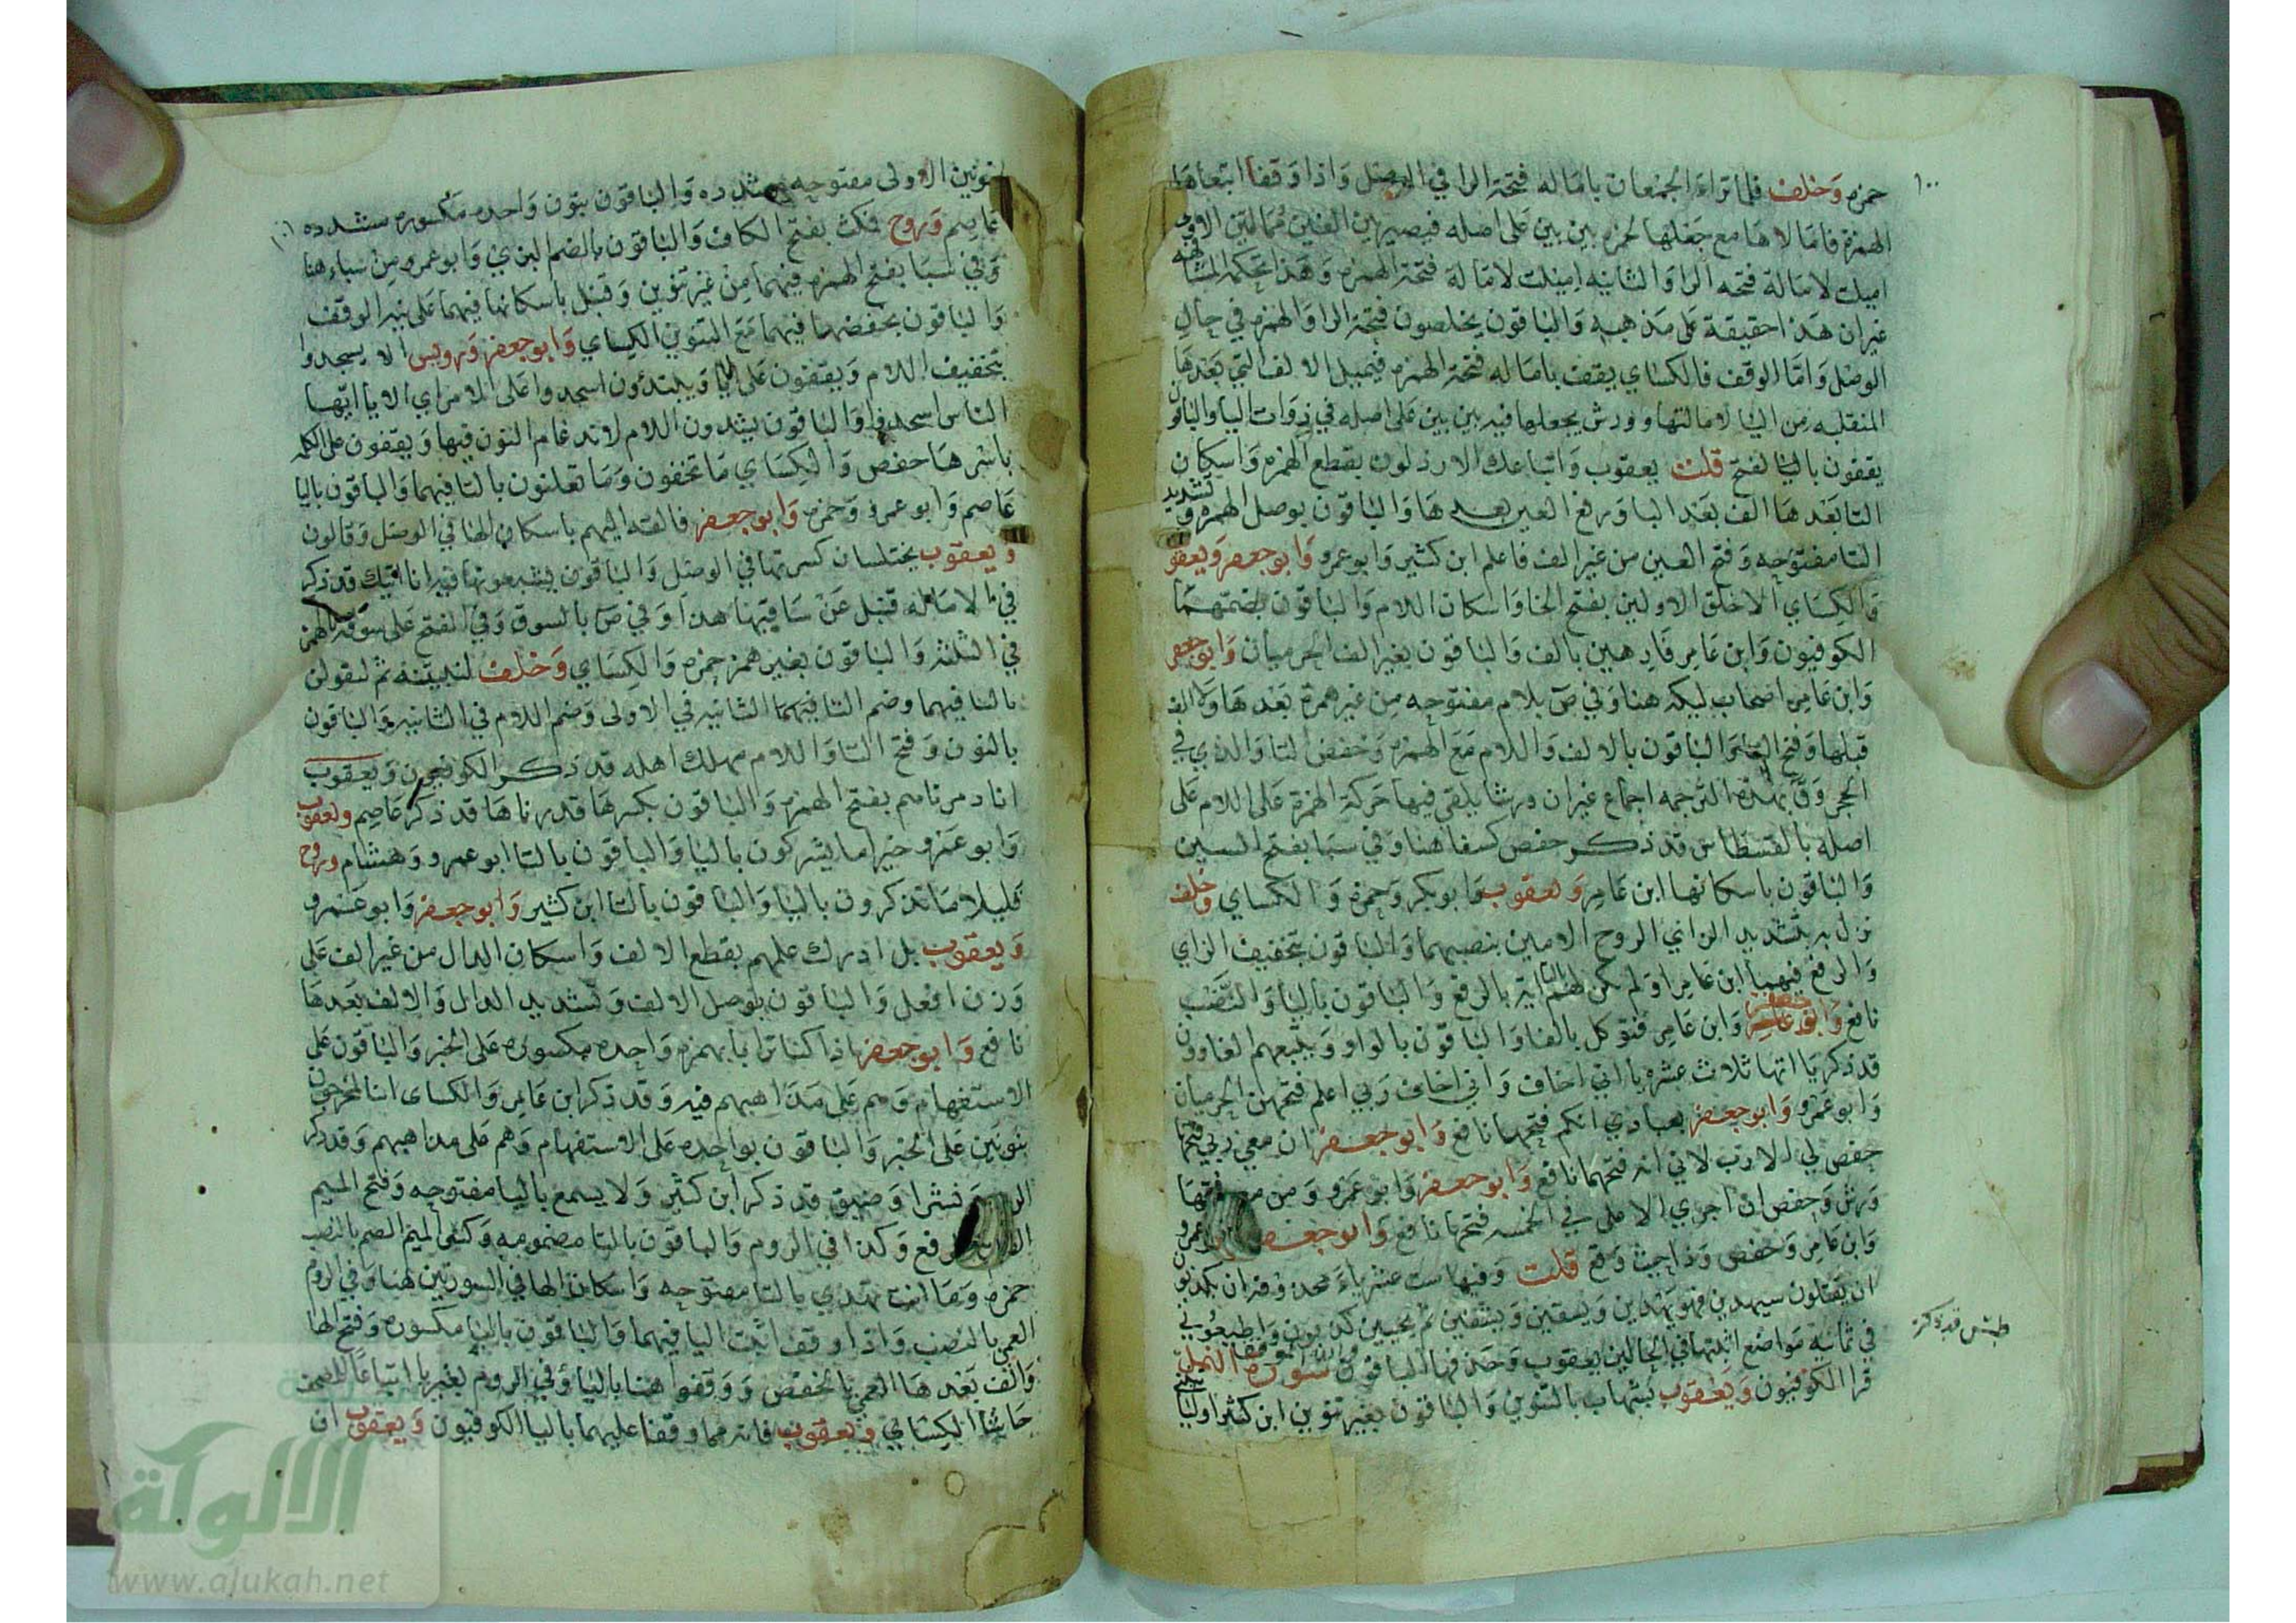 ١٠٠
حمزه وخلف فلما تراءا الجمعان بامالة فتحة الرا في الوصل واذا وقفا اتبعاها
الهمزة فامالاها مع جعلها لحمزه بين بين على اصله فيصير بين الفين ممالتين الاولى
اميلت لامالة فتحه الرا والثانيه اميلت لامالة فتحة الهمزه وهذا تحكمه المشافهه
غير ان هذا حقيقة على مذهبه والباقون يخلصون فتحة الرا والهمزه في حال
الوصل واما الوقف فالكساي يقف بامالة فتحة الهمزه فيميل الالف التي بعدها
المنقلبه من اليا لامالتها وورش يجعلها فيه بين بين على اصله في ذوات اليا والباقون
يقفون بالفتح قلت يعقوب واتباعك الارذلون بقطع الهمزه واسكان
التا بعدها الف بعد البا ورفع العين بعدها والباقون بوصل الهمزه وتشديد
التا مفتوحه وفتح العين من غير الف فاعلم ابن كثير وابو عمرو وابو جعفر ويعقوب
والكساي الا خلق الاولين بفتح الخا واسكان اللام والباقون بضمتهما
الكوفيون وابن عامر فارهين بالف والباقون بغير الف الحرميان وابو جعفر
وابن عامر اصحاب ليكة هنا وفي ص بلام مفتوحه من غير همزة بعدها ولا الف
قبلها وفتح التا والباقون بالالف واللام مع الهمزه وخفض التا والذي في
الحجر وق بهذه الترجمه اجماع غير ان ورشا يلقي فيها حركة الهمزة على اللام على
اصله بالقسطاس قد ذكر حفص كسفا هنا وفي سبا بفتح السين
والباقون باسكانها ابن عامر ويعقوب وابو بكر وحمزه والكساي وخلف
نزل به بتشديد الزاي الروح الامين بنصبهما والباقون بتخفيف الزاي
والرفع فيهما ابن عامر اولم تكن لهم بالتا اية بالرفع والباقون باليا والنصب
نافع وابو جعفر وابن عامر فتوكل بالفا والباقون بالواو ويتبعهم الغاوون
قد ذكر ياءاتها ثلاث عشره يا اني اخاف واني اخاف ربي اعلم فتحهن الحرميان
وابو عمرو وابو جعفر بعبادي انكم فتحها نافع وابو جعفر ان معي ربي فتحها
حفص لي الا رب لابي انه فتحهما نافع وابو جعفر وابو عمرو ومن معي فتحها
ورش وحفص ان اجري الا على في الخمسه فتحها نافع وابو جعفر وابو عمرو
وابن عامر وحفص وذا حيث وقع قلت وفيها ست عشر ياء محذوفة ان يكذبون
ان يقتلون سيهدين فهو يهدين ويسقين ويشفين ثم يحيين كذبون واطيعون في
في ثمانيه مواضع اثبتها في الحالين يعقوب وحذفها الباقون سورة النمل
قرا الكوفيون ويعقوب بشهاب بالتنوين والباقون بغير تنوين ابن كثير اولياتيني
طس قد ذكر
بنونين الاولى مفتوحه مشدده والباقون بنون واحده مكسوره مشدده
عاصم وروح فمكث بفتح الكاف والباقون بالضم البزي وابو عمرو من سباء هنا
وفي سبا بفتح الهمزه فيهما من غير تنوين وقنبل باسكانها فيهما على نيه الوقف
والباقون بخفضها فيهما مع التنوين الكساي وابو جعفر ورويس الا يسجدوا
بتخفيف اللام ويقفون على اليا ويبتدئون اسجدوا على الامر اي الا يا ايها
الناس اسجدوا والباقون يشددون اللام لاندغام النون فيها ويقفون على الكلمه
باسرها حفص والكساي ما تخفون وما تعلنون بالتا فيهما والباقون باليا
عاصم وابو عمرو وحمزه وابو جعفر فالقه اليهم باسكان الها في الوصل وقالون
ويعقوب يختلسان كسرتها في الوصل والباقون يشبعونها فيه انا اتيك قد ذكر
في الاماله قنبل عن ساقيها هنا وفي ص بالسوق وفي الفتح على سوقه بالهمز
في الثلثه والباقون بغير همز حمزه والكساي وخلف لتبيتنه ثم لتقولن
بالتا فيهما وضم التا الثانيه في الاولى وضم اللام في الثانيه والباقون
بالنون وفتح التا واللام مهلك اهله قد ذكر الكوفيون ويعقوب
انا دمرناهم بفتح الهمزه والباقون بكسرها قدرناها قد ذكر عاصم ويعقوب
وابو عمرو خير اما يشركون باليا والباقون بالتا ابو عمرو وهشام وروح
قليلا ما تذكرون باليا والباقون بالتا ابن كثير وابو جعفر وابو عمرو
ويعقوب بل ادرك علمهم بقطع الالف واسكان الدال من غير الف على
وزن افعل والباقون بوصل الالف وتشديد الدال والالف بعدها
نافع وابو جعفر اذا كنا ترابا بهمزه واحده مكسوره على الخبر والباقون على
الاستفهام وهم على مذاهبهم فيه وقد ذكر ابن عامر والكساى اننا لمخرجون
بنونين على الخبر والباقون بواحده على الاستفهام وهم على مذاهبهم وقد ذكر
نشرا وضيق قد ذكر ابن كثير ولا يسمع باليا مفتوحه وفتح الميم
رفع وكذا في الروم والباقون بالتا مضمومه وكسر الميم الصم بالنصب
حمزه وما انت تهدي بالتا مفتوحه واسكان الها في السورتين هنا وفي الروم
العمى بالنصب واذا وقف اثبت اليا فيهما والباقون بالبا مكسوره وفتح الها
والف بعدها العمي بالخفض ووقفوا هنا باليا وفي الروم بغير يا اتباعا للمصحف
حاشا الكساي ويعقوب فانهما وقفا عليهما باليا الكوفيون ويعقوب ان
الألوكة
www.alukah.net